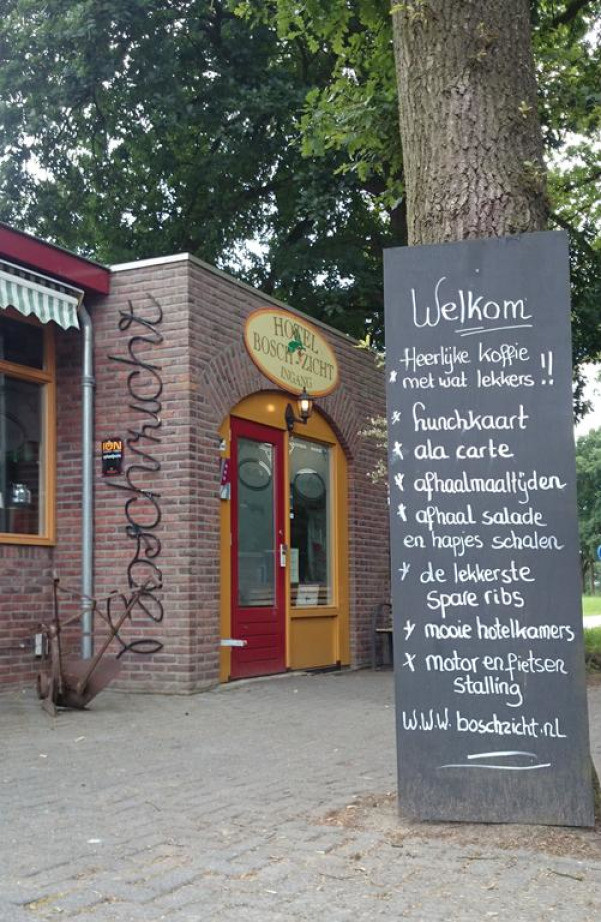 HOTEL
BOSCH-ZICHT
INGANG
boschzicht
Welkom
Heerlijke koffie
* met wat lekkers !!
* Lunchkaart
* ala carte
* afhaalmaaltijden
* afhaal salade
en hapjes schalen
* de lekkerste
spare ribs
* mooie hotelkamers
* motor en fietsen
stalling
W.W.W. boschzicht.nl